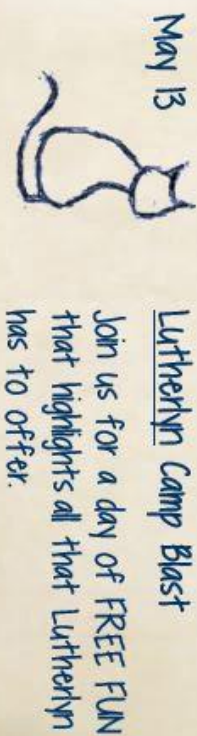 May 13
Lutherlyn Camp Blast
Join us for a day of FREE FUN
that highlights all that Lutherlyn
has to offer.